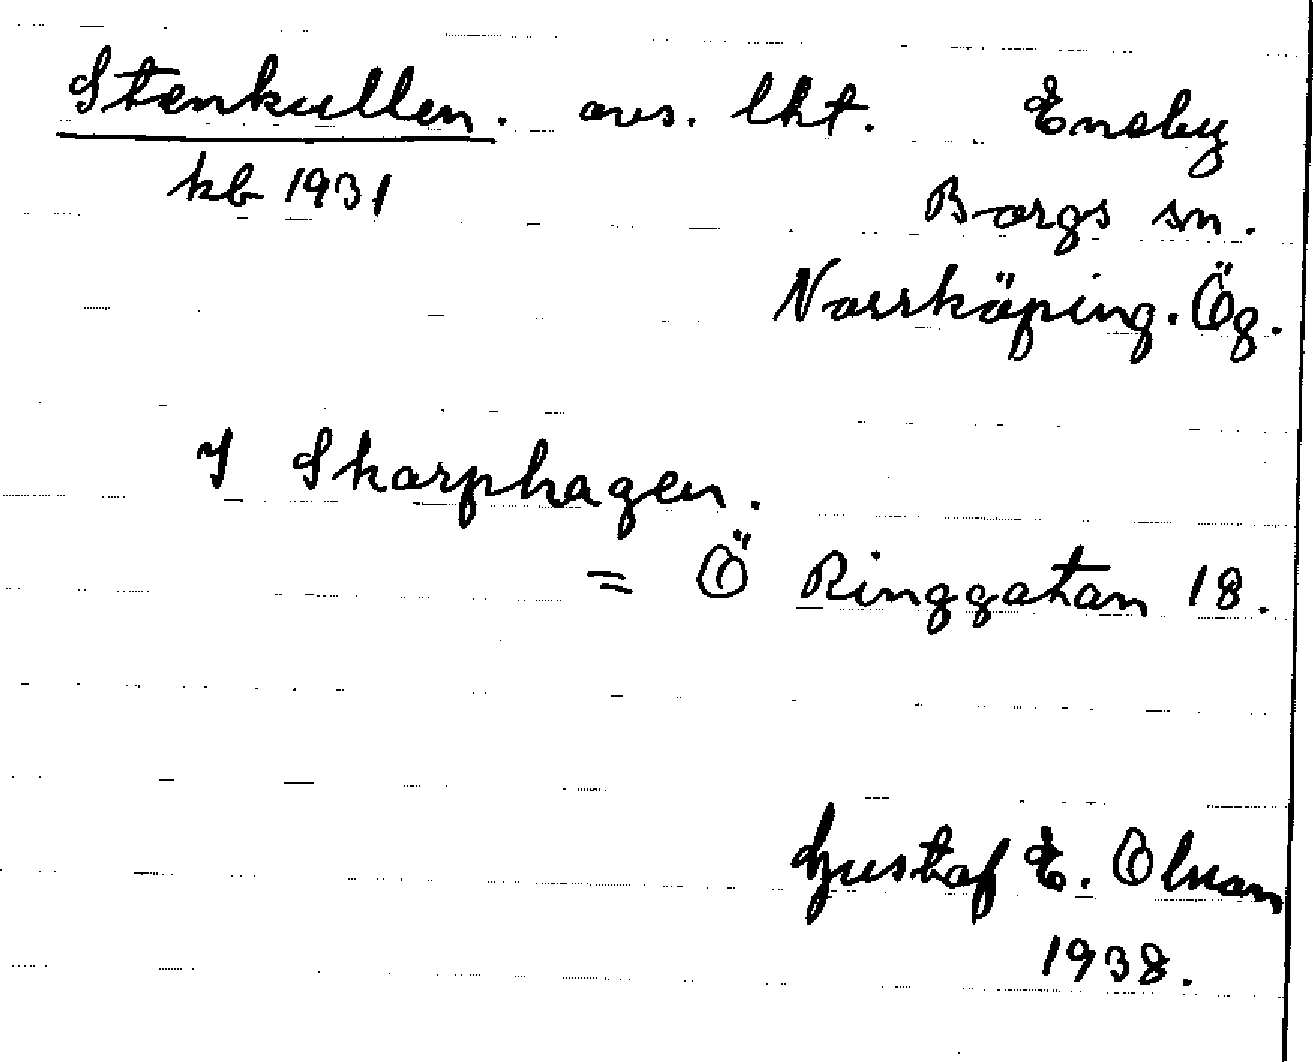 Stenkullen. avs. lht. Eneby
kb 1931
Borgs sn.
Norrköping. Ög.
I Skarphagen.
= Ö Ringgatan 18.
Gustaf E. Olsson
1938.